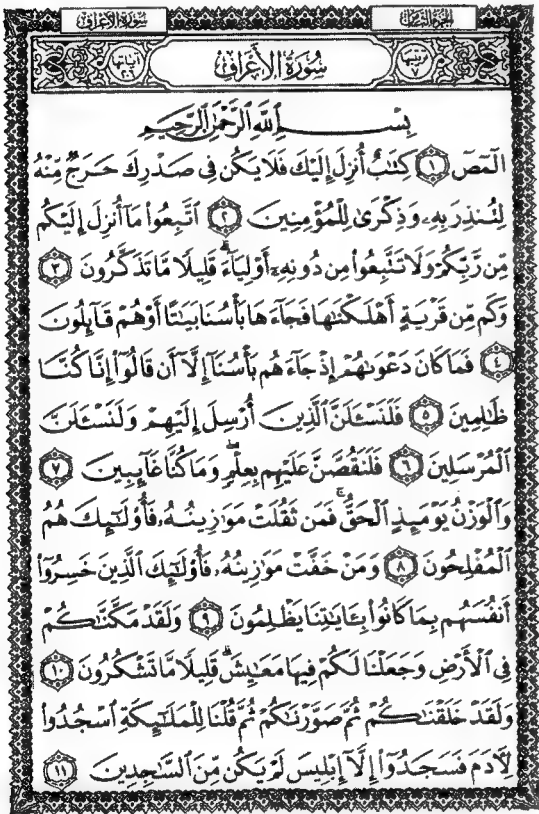 سُورَةُ الأَعْرَافِ الجُزْءُ الثَّامِنُ
ترتيبها ٧ سُورَةُ الأَعْرَافِ آياتها ٢٠٦
بِسْمِ ٱللَّهِ ٱلرَّحْمَٰنِ ٱلرَّحِيمِ
الٓمٓصٓ ١ كِتَٰبٌ أُنزِلَ إِلَيْكَ فَلَا يَكُن فِى صَدْرِكَ حَرَجٌ مِّنْهُ
لِتُنذِرَ بِهِۦ وَذِكْرَىٰ لِلْمُؤْمِنِينَ ٢ ٱتَّبِعُوا۟ مَآ أُنزِلَ إِلَيْكُم
مِّن رَّبِّكُمْ وَلَا تَتَّبِعُوا۟ مِن دُونِهِۦٓ أَوْلِيَآءَ ۗ قَلِيلًا مَّا تَذَكَّرُونَ ٣
وَكَم مِّن قَرْيَةٍ أَهْلَكْنَٰهَا فَجَآءَهَا بَأْسُنَا بَيَٰتًا أَوْ هُمْ قَآئِلُونَ
٤ فَمَا كَانَ دَعْوَىٰهُمْ إِذْ جَآءَهُم بَأْسُنَآ إِلَّآ أَن قَالُوٓا۟ إِنَّا كُنَّا
ظَٰلِمِينَ ٥ فَلَنَسْـَٔلَنَّ ٱلَّذِينَ أُرْسِلَ إِلَيْهِمْ وَلَنَسْـَٔلَنَّ
ٱلْمُرْسَلِينَ ٦ فَلَنَقُصَّنَّ عَلَيْهِم بِعِلْمٍ ۖ وَمَا كُنَّا غَآئِبِينَ ٧
وَٱلْوَزْنُ يَوْمَئِذٍ ٱلْحَقُّ ۚ فَمَن ثَقُلَتْ مَوَٰزِينُهُۥ فَأُو۟لَٰٓئِكَ هُمُ
ٱلْمُفْلِحُونَ ٨ وَمَنْ خَفَّتْ مَوَٰزِينُهُۥ فَأُو۟لَٰٓئِكَ ٱلَّذِينَ خَسِرُوٓا۟
أَنفُسَهُم بِمَا كَانُوا۟ بِـَٔايَٰتِنَا يَظْلِمُونَ ٩ وَلَقَدْ مَكَّنَّٰكُمْ
فِى ٱلْأَرْضِ وَجَعَلْنَا لَكُمْ فِيهَا مَعَٰيِشَ ۗ قَلِيلًا مَّا تَشْكُرُونَ ١٠
وَلَقَدْ خَلَقْنَٰكُمْ ثُمَّ صَوَّرْنَٰكُمْ ثُمَّ قُلْنَا لِلْمَلَٰٓئِكَةِ ٱسْجُدُوا۟
لِـَٔادَمَ فَسَجَدُوٓا۟ إِلَّآ إِبْلِيسَ لَمْ يَكُن مِّنَ ٱلسَّٰجِدِينَ ١١